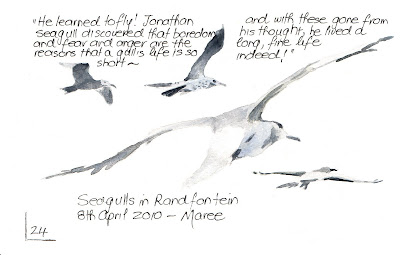 "He learned to fly! Jonathan
seagull discovered that boredom
and fear and anger are the
reasons that a gull's life is so
short ~
and with these gone from
his thought, he lived a
long, fine life
indeed!"
Seagulls in Randfontein
8th April 2010 - Maree
24